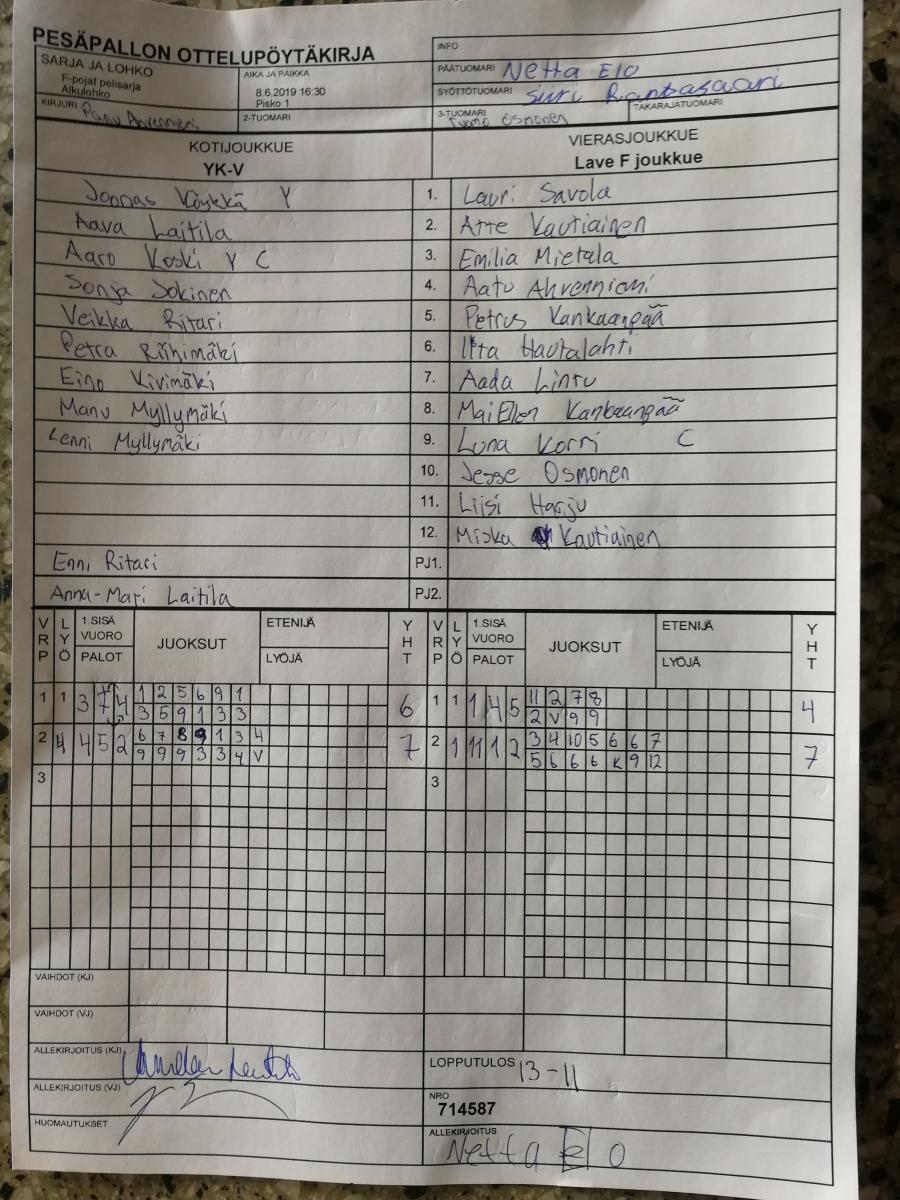 PESÄPALLON OTTELUPÖYTÄKIRJA
SARJA JA LOHKO
F-pojat pelisarja
Alkulohko
AIKA JA PAIKKA
8.6.2019 16:30
Pisko 1
KIRJURI
2-TUOMARI
INFO
PÄÄTUOMARI Netta Elo
SYÖTTÖTUOMARI Siiri Rantasaari
3-TUOMARI Tuomo Osmonen
TAKARAJATUOMARI
KOTIJOUKKUE
YK-V
VIERASJOUKKUE
Lave F joukkue
Joonas Köykkä Y 1. Lauri Savola
Aava Laitila 2. Atte Kautiainen
Aaro Koski Y C 3. Emilia Mietala
Sonja Jokinen 4. Aatu Ahvenniemi
Veikka Ritari 5. Petrus Kankaanpää
Petra Riihimäki 6. Iita Hautalahti
Eino Kivimäki 7. Aada Lintu
Manu Myllymäki 8. MaiEllen Kankaanpää
Lenni Myllymäki 9. Luna Korri C
10. Jesse Osmonen
11. Liisi Harju
12. Miska Kautiainen
Enni Ritari PJ1.
Anna-Mari Laitila PJ2.
VRP LYÖ 1.SISÄ VUORO PALOT JUOKSUT ETENIJÄ LYÖJÄ YHT VRP LYÖ 1.SISÄ VUORO PALOT JUOKSUT ETENIJÄ LYÖJÄ YHT
1 1 3 7 4 1 2 5 6 9 1 6 1 1 1 4 5 11 2 7 8 4
3 5 9 1 3 3 2 V 9 9
2 4 4 5 2 6 7 8 9 1 3 4 7 2 1 11 1 2 3 4 10 5 6 6 7 7
9 9 9 3 3 4 V 5 6 6 6 K 9 12
3 3
VAIHDOT (KJ)
VAIHDOT (VJ)
ALLEKIRJOITUS (KJ)
LOPPUTULOS 13-11
ALLEKIRJOITUS (VJ)
NRO
714587
HUOMAUTUKSET
ALLEKIRJOITUS
Netta Elo